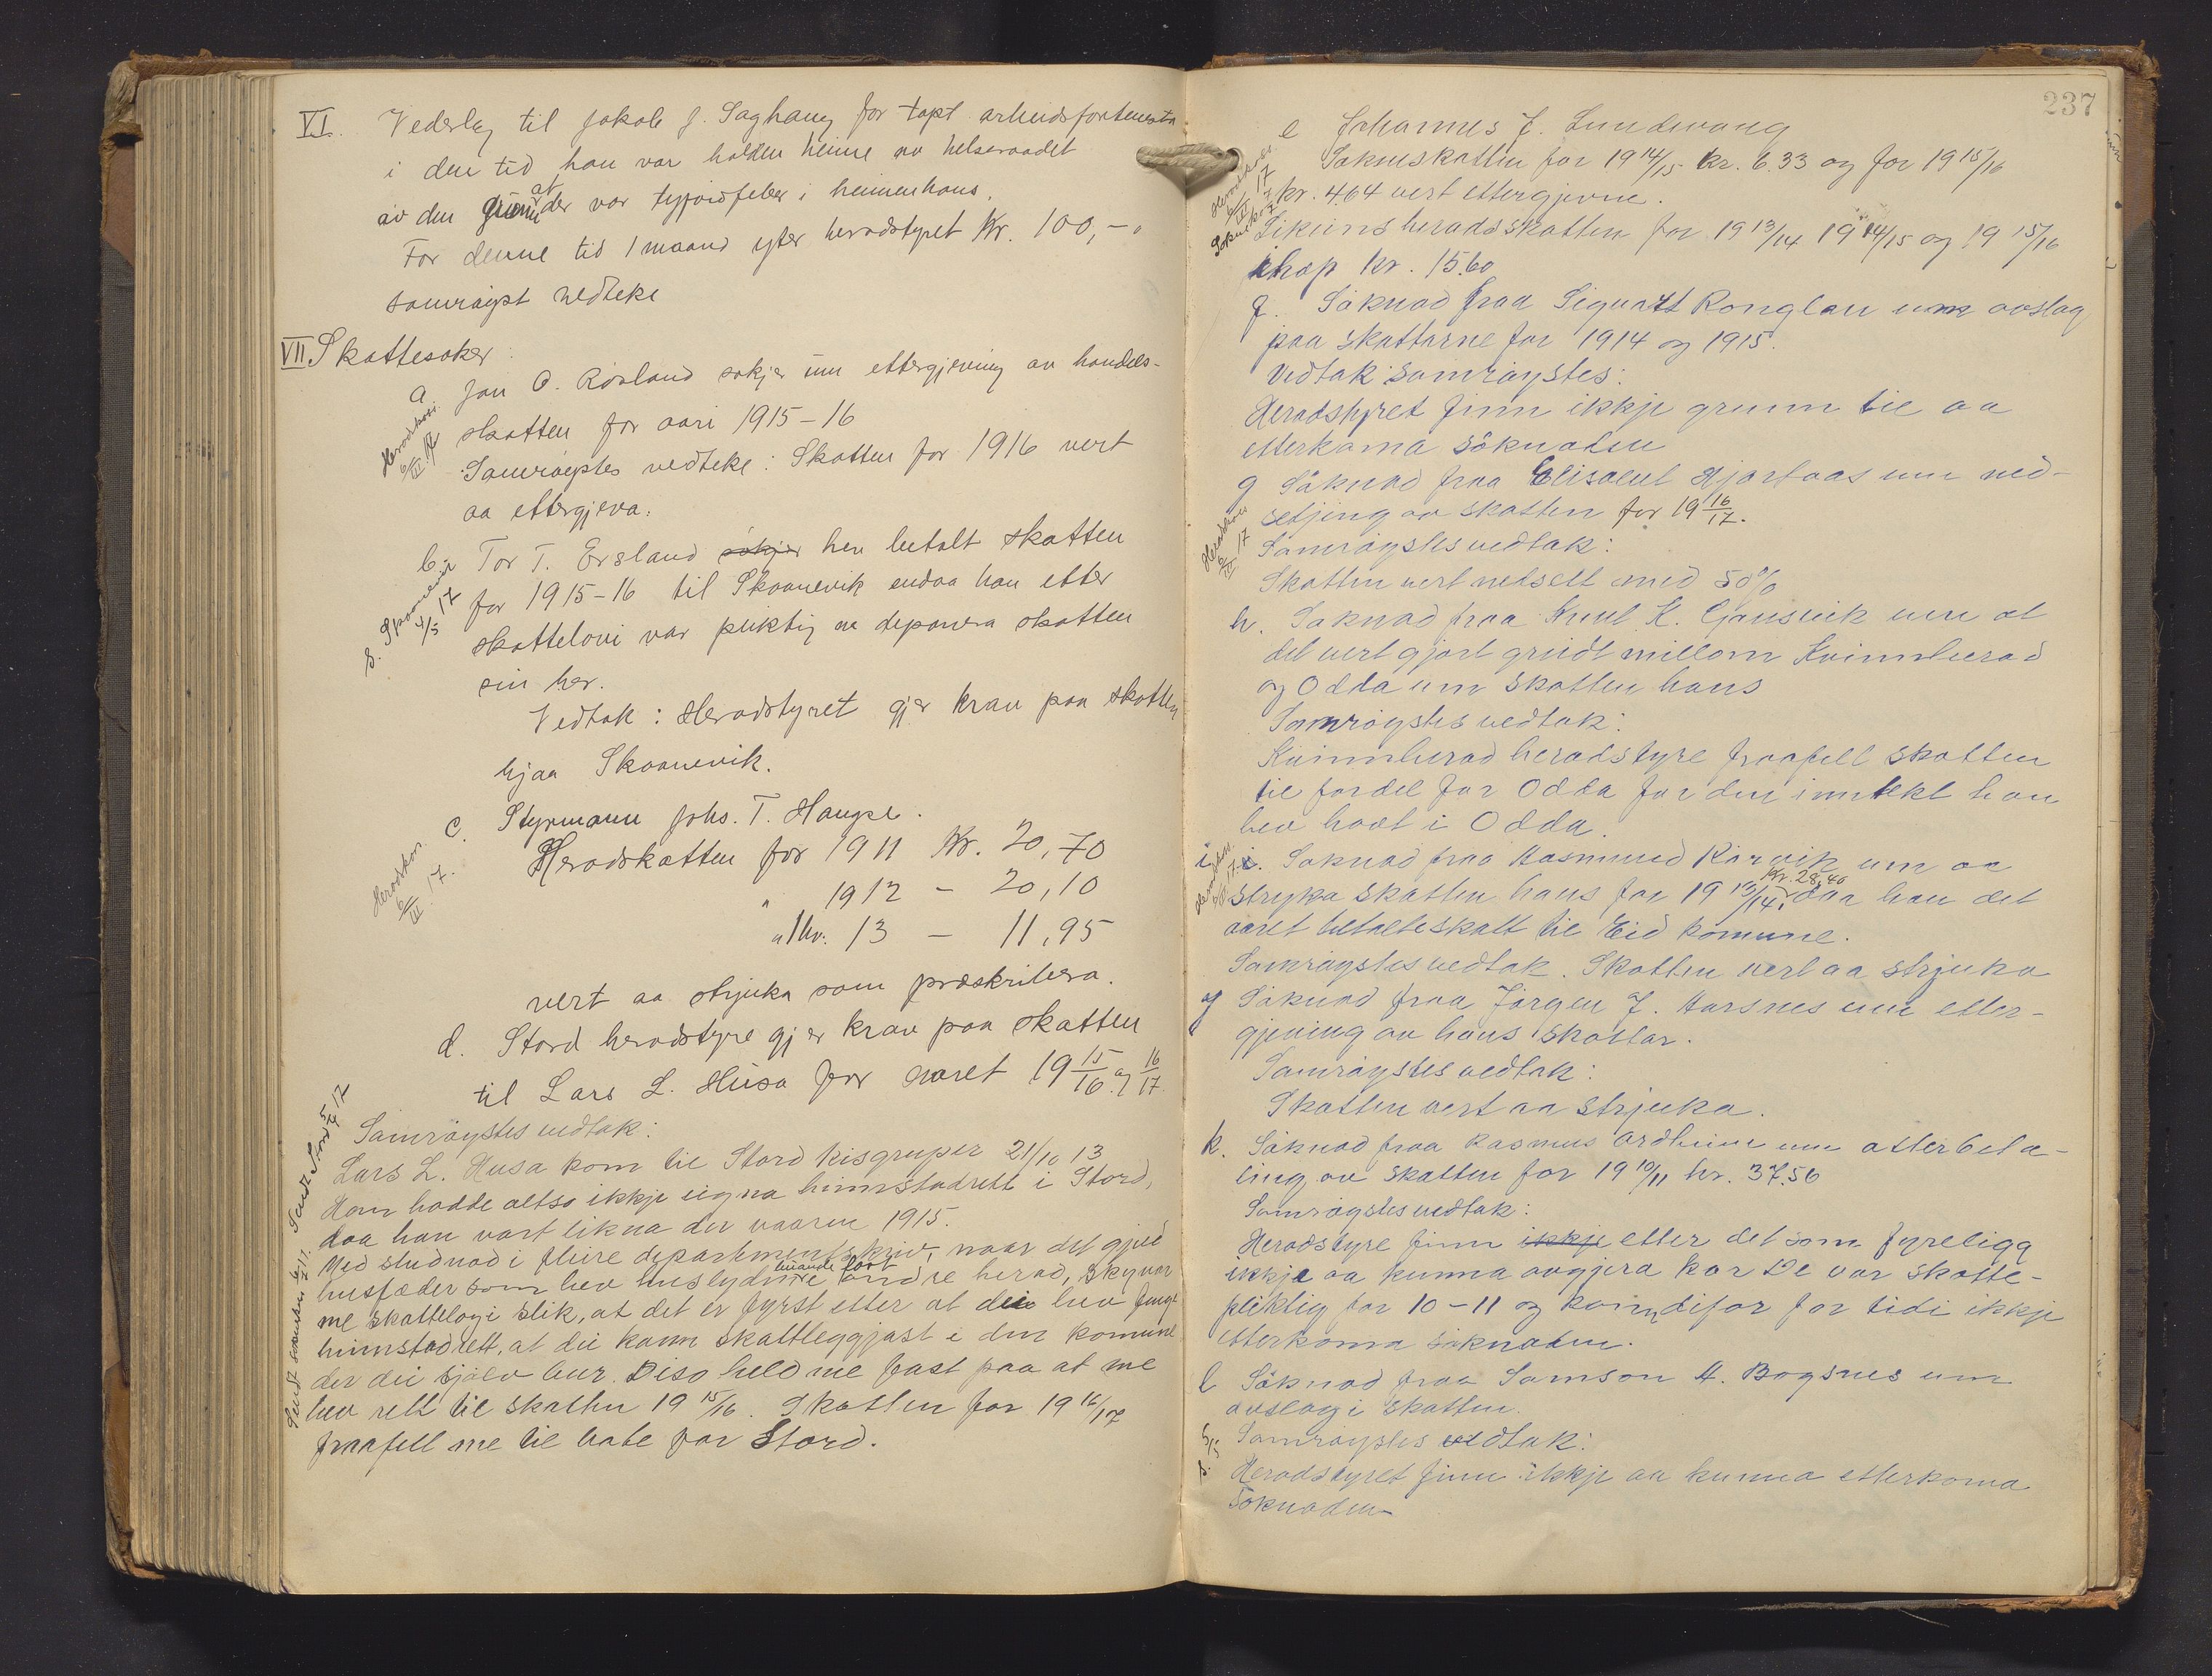 VI. Vederlag til Jakob J. Saghaug for tapt arbeidsfortenesta
i den tid han var halden heime av helseraadet
av den grunn at der var tyfoidfeber i heimen hans.
For denne tid 1 maand yter heradstyret Kr. 100,-
samrøyst vedteke
VII. Skattesaker:
a. Jon O. Røsland søkjer um ettergjeving av handels-
skatten for aari 1915-16
Samrøystes vedteke: Skatten for 1916 vert
aa ettergjeva.
b. Tor T. Ersland søkjer hev betalt skatten
for 1915-16 til Skaanevik endaa han etter
skattelovi var pliktig aa deponera skatten
sin her.
Vedtak: Heradstyret gjer krav paa skatten
hjaa Skaanevik.
c. Styrmann Johs. T. Hauge.
Heradskatten for 1911 Kr. 20,70
" 1912 - 20,10
" 1hv. 13 - 11,95
vert aa strjuka som præskribera.
d. Stord heradstyre gjer krav paa skatten
til Lars L. Husa for aaret 19 15/16 og 16/17.
Samrøystes vedtak:
Lars L. Husa kom til Stord kisgruper 21/10 13
Han hadde altso ikkje eigna heimstadrett i Stord,
daa han vart likna der vaaren 1915.
Med studnad i fleire departementskriv, naar det gjeld
husfeder som hev huslyden buande i andre herad, skynar
me skattelogi slik, at det er fyrst etter at dei hev fengt
heimstadrett, at dei kann skattleggjast i den komune
der dei sjølv bur. Diso held me fast paa at me
hev rett til skatten 19 15/16. Skatten for 19 16/17
fraafell me til bate for Stord.
Heradskas. 6/III 17
S. Skaanevik 4/5 17
Heradskas. 6/III 17.
237
e Johannes J. Sundvang
Sokneskatten for 19 14/15 kr. 6.33 og for 19 15/16
kr. 4.64 vert ettergjevne.
Likeins heradsskatten for 19 13/14 19 14/15 og 19 15/16
ihop kr. 15.60
f. Søknad fraa Sigvart Ronglan um avslag
paa skattarne for 1914 og 1915.
Vedtak samrøystes:
Heradstyret finn ikkje grunn til aa
etterkoma søknaden
g Søknad fraa Elisaeut Hjortaas um ned-
setjing av skatten for 19 16/17.
Samrøystes vedtak:
Skatten vert nedsett med 50%
h. Søknad fraa Knut K. Gausvik um at
det vert gjort greidt millom Kvinnherad
og Odda um skatten hans
Samrøystes vedtak:
Kvinnherad heradstyre fraafell skatten
til fordel for Odda for den inntekt han
hev havt i Odda.
i. Søknad fraa Aasmund Rørvik um aa
stryka skatten hans for 19 13/14, kr. 28,40 daa han det
aaret betalte skatt til Eid komune.
Samrøystes vedtak. Skatten vert aa strjuka
j Søknad fraa Jørgen J. Aarsnes um etter-
gjeving av hans skattar.
Samrøystes vedtak:
Skatten vert aa strjuka.
k. Søknad fraa Rasmus Ardheim um atterbeta-
ling av skatten for 19 10/11 kr. 37.56
Samrøystes vedtak:
Heradstyre finn ikkje etter det som fyreligg
ikkje aa kunna avgjera kor De var skatte-
pliktig for 10-11 og kann difor for tidi ikkje
etterkoma søknaden.
l Søknad fraa Samson A. Bogsnes um
avslag i skatten.
Samrøystes vedtak:
Heradstyret finn ikkje aa kunna etterkoma
søknaden
Heradskas. 6/III 17
Heradskas 6/III 17